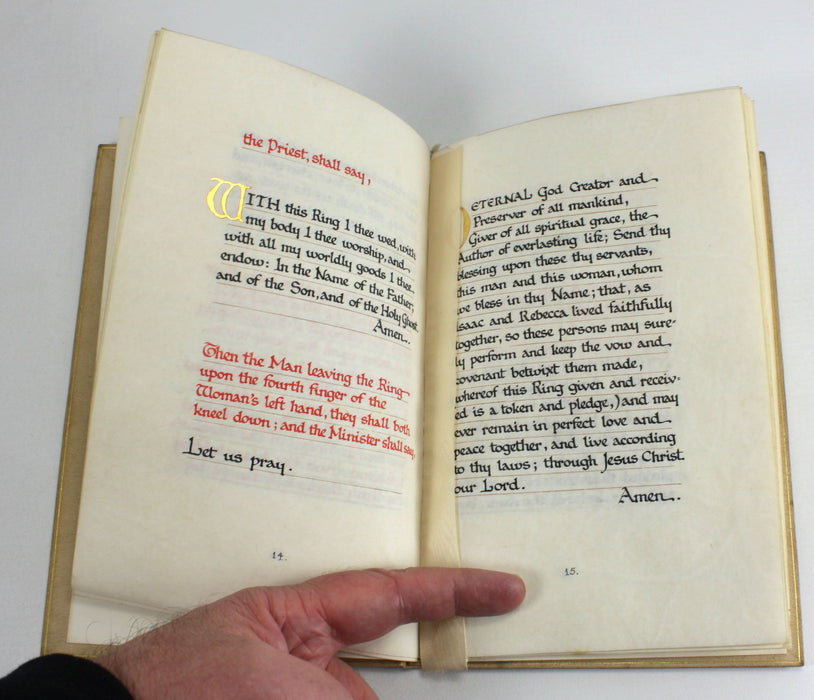 the Priest, shall say,
WITH this Ring I thee wed, with
my body I thee worship, and
with all my worldly goods I thee
endow: In the Name of the Father,
and of the Son, and of the Holy Ghost.
Amen.
Then the Man leaving the Ring
upon the fourth finger of the
Woman's left hand, they shall both
kneel down; and the Minister shall say,
Let us pray.
14.
O ETERNAL God Creator and
Preserver of all mankind,
Giver of all spiritual grace, the
Author of everlasting life; Send thy
blessing upon these thy servants,
this man and this woman, whom
we bless in thy Name; that, as
Isaac and Rebecca lived faithfully
together, so these persons may sure-
ly perform and keep the vow and
covenant betwixt them made,
whereof this Ring given and receiv-
ed is a token and pledge,) and may
ever remain in perfect love and
peace together, and live according
to thy laws; through Jesus Christ
our Lord.
Amen.
15.